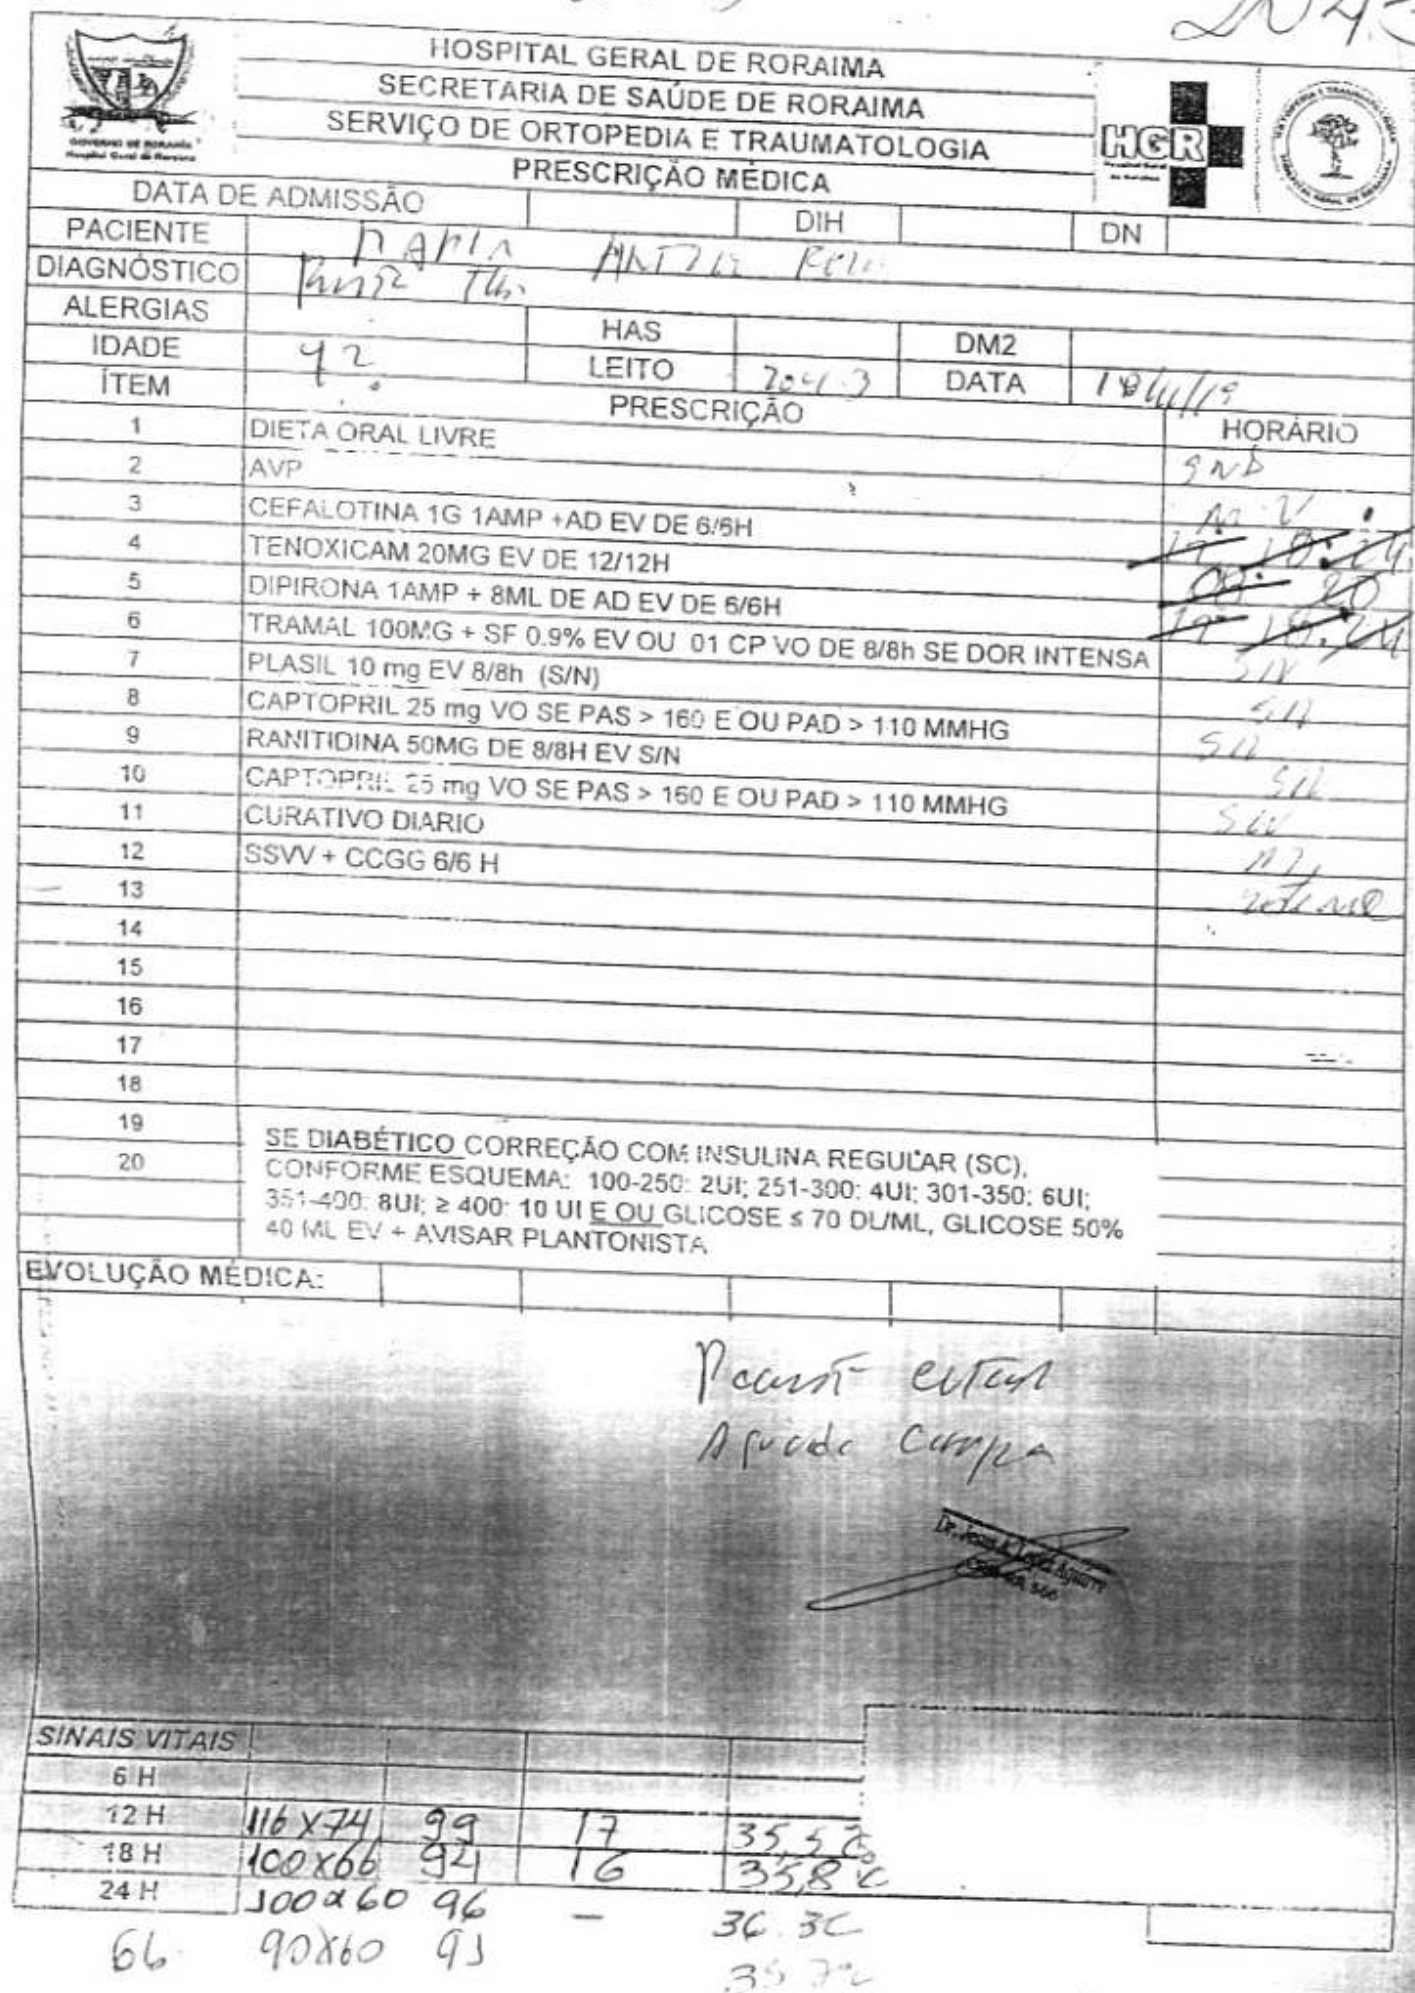 HOSPITAL GERAL DE RORAIMA
SECRETARIA DE SAÚDE DE RORAIMA
SERVIÇO DE ORTOPEDIA E TRAUMATOLOGIA
PRESCRIÇÃO MÉDICA
GOVERNO DE RORAIMA
Hospital Geral de Roraima
HGR
Hospital Geral de Roraima
DATA DE ADMISSÃO DIH DN
PACIENTE MARIA
DIAGNÓSTICO
ALERGIAS HAS DM2
IDADE 42 LEITO 204.3 DATA 18/11/19
ÍTEM PRESCRIÇÃO HORÁRIO
1 DIETA ORAL LIVRE SND
2 AVP
3 CEFALOTINA 1G 1AMP +AD EV DE 6/6H 18 24
4 TENOXICAM 20MG EV DE 12/12H 08 20
5 DIPIRONA 1AMP + 8ML DE AD EV DE 6/6H 18 24
6 TRAMAL 100MG + SF 0.9% EV OU 01 CP VO DE 8/8h SE DOR INTENSA S/N
7 PLASIL 10 mg EV 8/8h (S/N) S/N
8 CAPTOPRIL 25 mg VO SE PAS > 160 E OU PAD > 110 MMHG S/N
9 RANITIDINA 50MG DE 8/8H EV S/N S/N
10 CAPTOPRIL 25 mg VO SE PAS > 160 E OU PAD > 110 MMHG S/N
11 CURATIVO DIARIO
12 SSVV + CCGG 6/6 H
13
14
15
16
17
18
19
20
SE DIABÉTICO CORREÇÃO COM INSULINA REGULAR (SC),
CONFORME ESQUEMA: 100-250: 2UI; 251-300: 4UI; 301-350: 6UI;
351-400: 8UI; ≥ 400: 10 UI E OU GLICOSE ≤ 70 DL/ML, GLICOSE 50%
40 ML EV + AVISAR PLANTONISTA
EVOLUÇÃO MÉDICA:
SINAIS VITAIS
6 H
12 H 116 X 74 99 17 35,5°C
18 H 100 X 66 94 16 35,8°C
24 H 100 x 60 96 – 36.3C
90X60